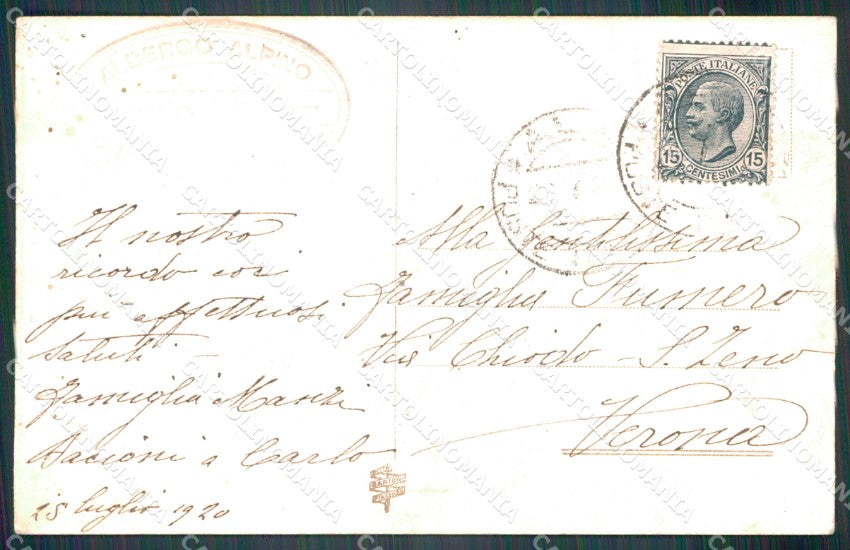 ALBERGO ALPINO
POSTE ITALIANE
15 15
CENTESIMI
Il nostro
ricordo coi
più affettuosi
saluti -
Famiglia Manzi
Bacioni a Carlo
25 luglio 1920
Alla Gentilissima
Famiglia Fumero
Via Chiodo - S. Zeno
Verona
CARTOLINOMANIA